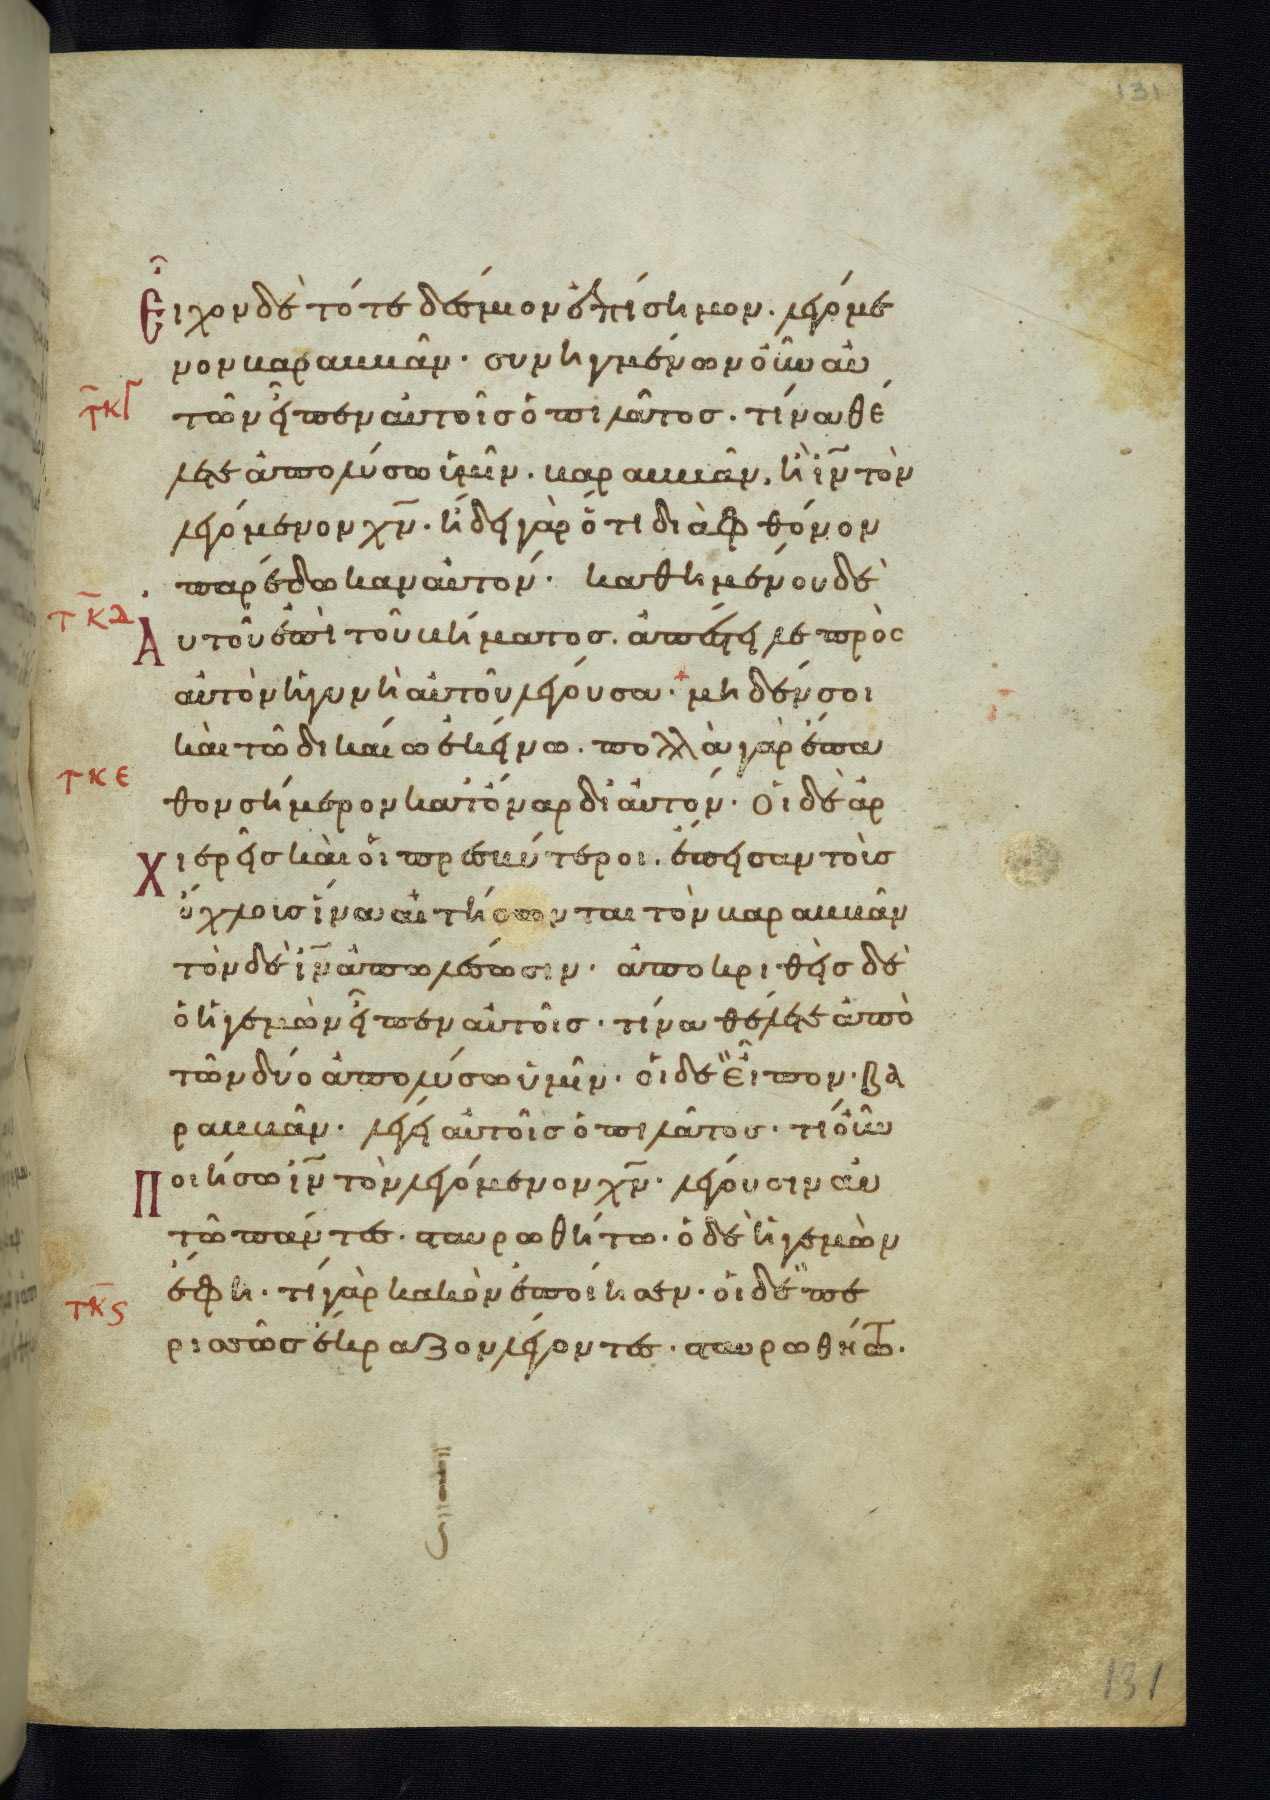 131
Εἶχον δὲ τότε δέσμιον ἐπίσημον. λεγόμε
νον βαραββᾶν· συνηγμένων οὖν αὐ
τκγ
τῶν εἶπεν αὐτοῖς ὁ πιλᾶτος. τίνα θέ
λετε ἀπολύσω ὑμῖν. βαραββᾶν, ἢ ἰν̅ τὸν
λεγόμενον χν̅. ἤδει γὰρ ὅτι διὰ φθόνον
παρέδωκαν αὐτόν· καθημένου δὲ
τκδ
Αὐτοῦ ἐπὶ τοῦ βήματος. ἀπέστειλε πρὸς
αὐτὸν ἡ γυνὴ αὐτοῦ λέγουσα· μηδέν σοι
καὶ τῶ δικαίω ἐκείνω. πολλὰ γὰρ ἔπα
τκε
θον σήμερον κατ' ὄναρ δι' αὐτόν. Οἱ δὲ ἀρ
Χιερεῖς καὶ οἱ πρεσβύτεροι. ἔπεισαν τοὶς
ὄχλοις ἵνα αἰτήσωνται τὸν βαραββᾶν
τὸν δὲ ἰν̅ ἀπωλέσωσιν· ἀποκριθεὶς δὲ
ὁ ἡγεμὼν εἶπεν αὐτοῖς· τίνα θέλετε ἀπὸ
τῶν δύο ἀπολύσω ὑμῖν· οἱ δὲ εἶπον· βα
ραββᾶν. λέγει αὐτοῖς ὁ πιλᾶτος· τί οὖν
Ποιήσω ἰν̅ τὸν λεγόμενον χν̅· λέγουσιν αὐ
τῶ πάντες· σταυρωθήτω· ὁ δὲ ἡγεμὼν
τκς
ἔφη· τί γὰρ κακὸν ἐποίησεν· οἱ δὲ πε
ρισσῶς ἔκραζον λέγοντες· σταυρωθήτω.
131